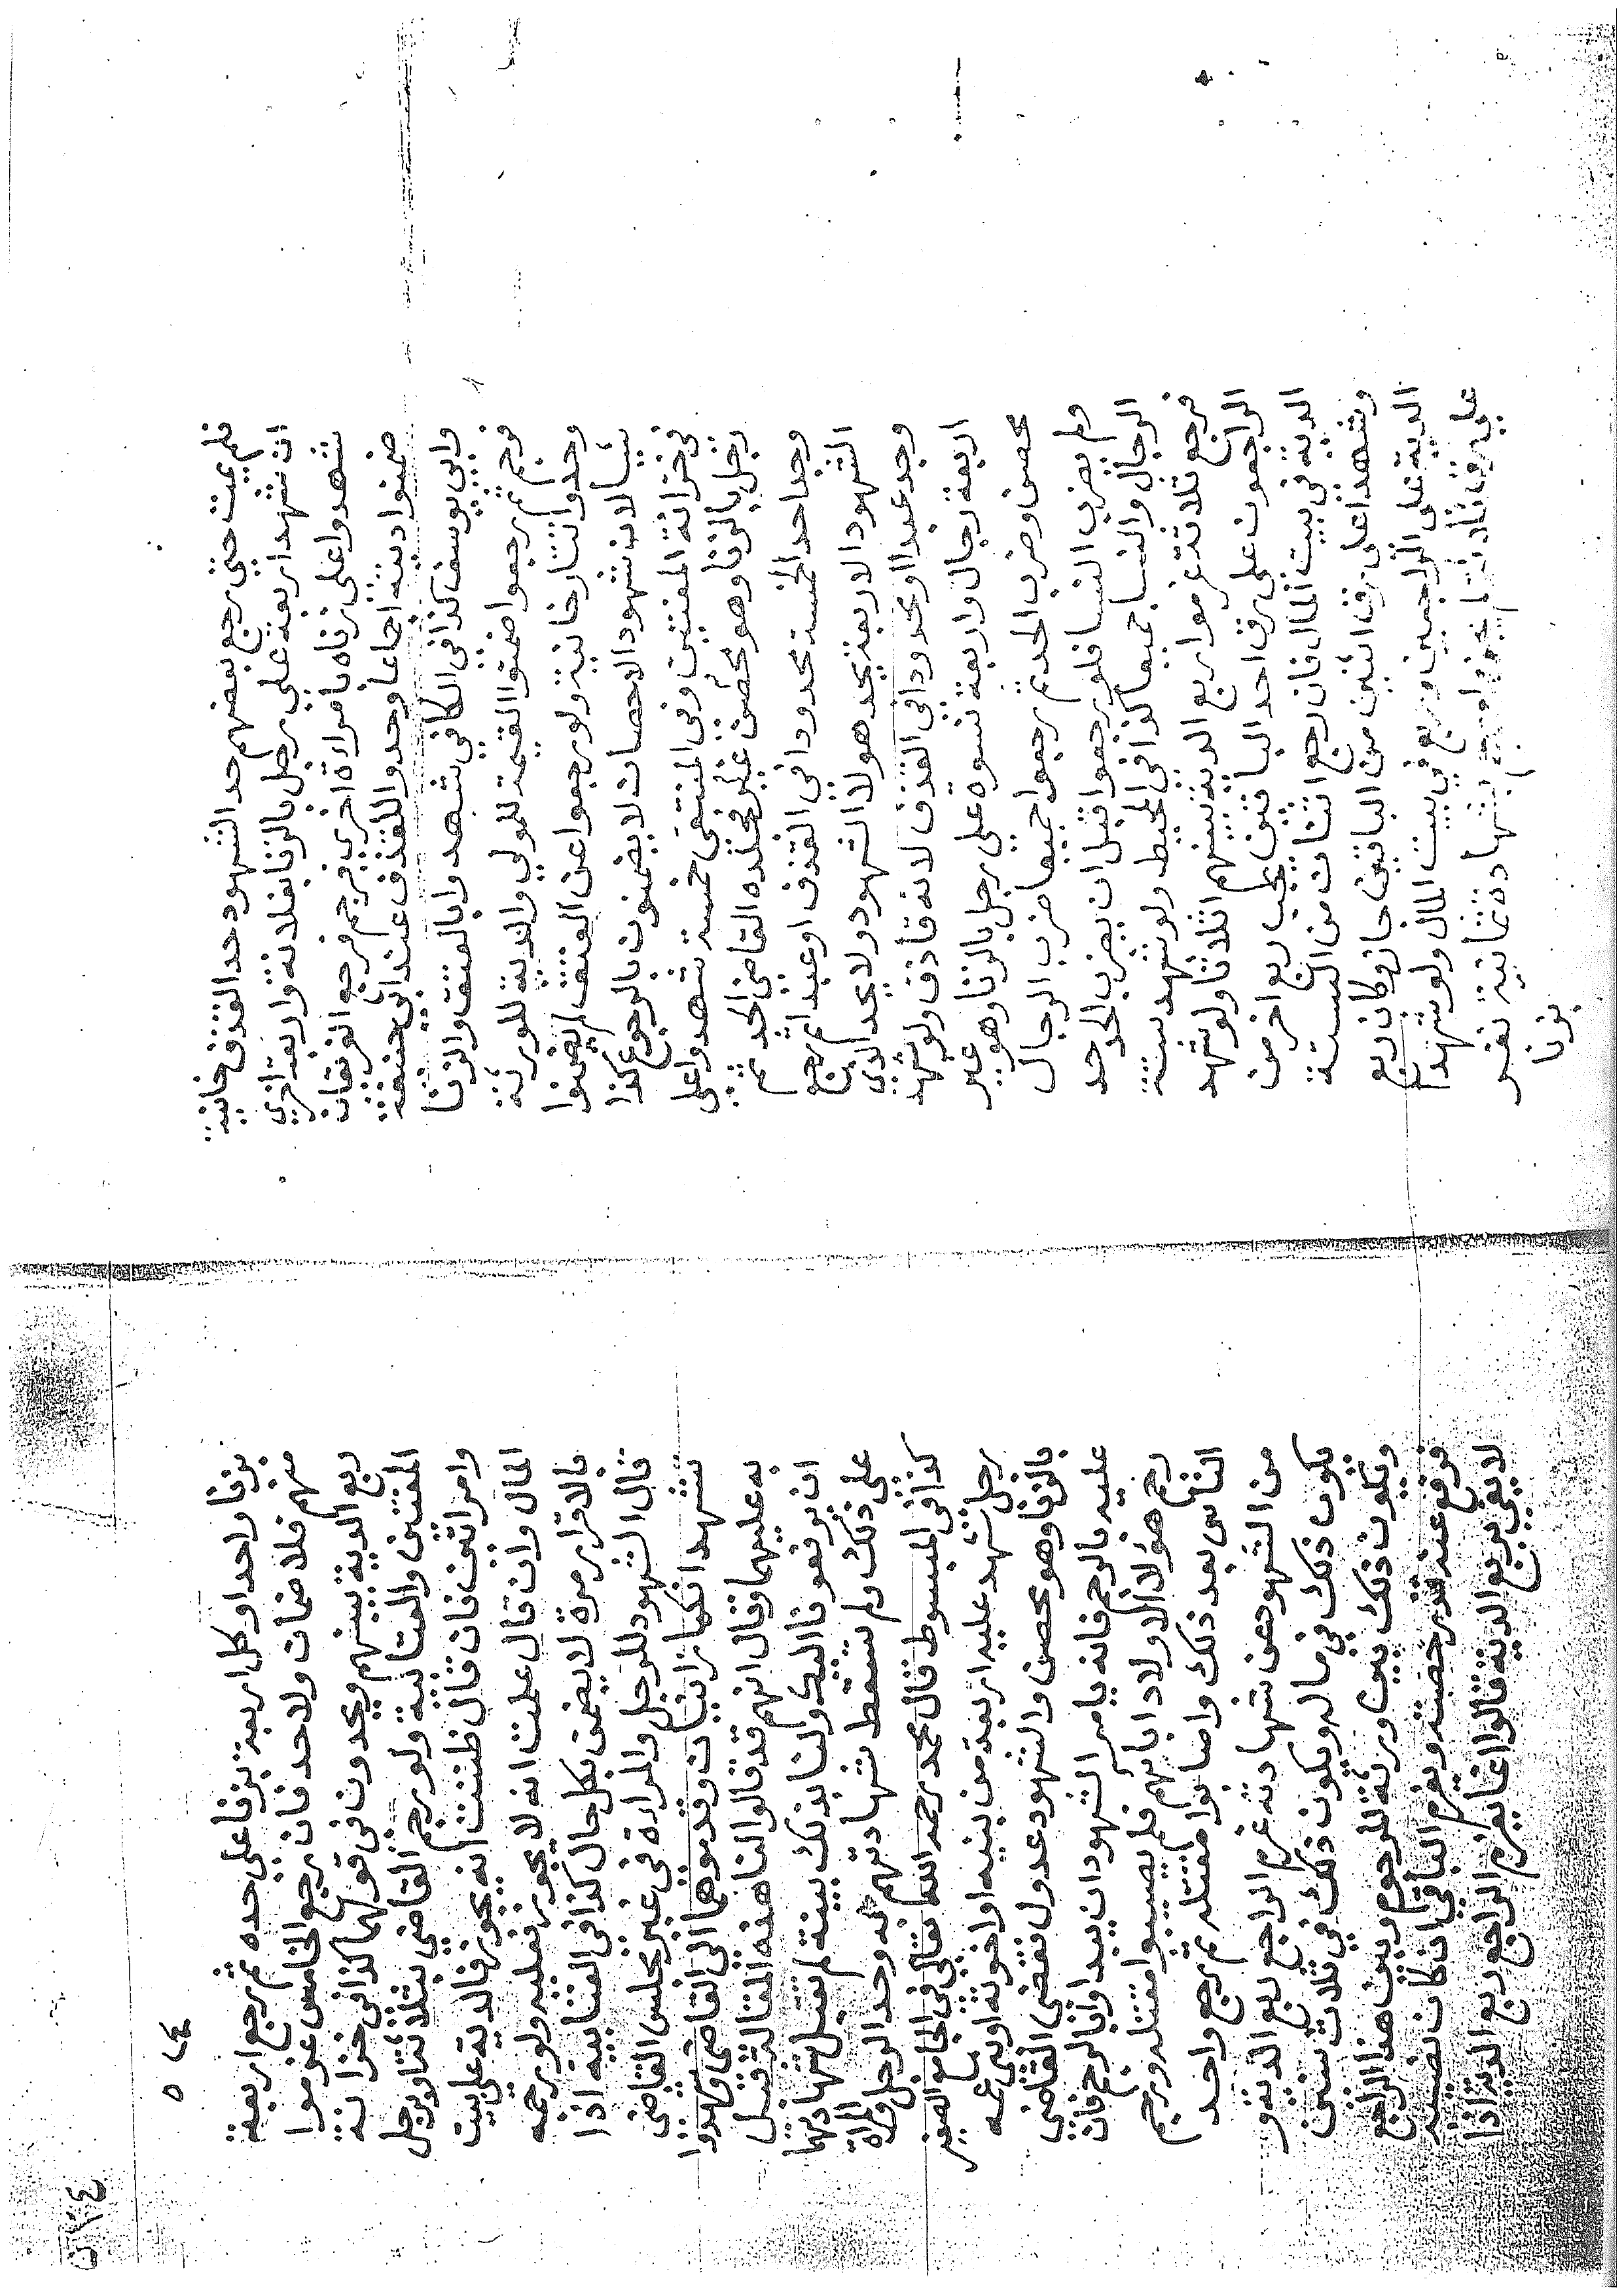 فلم يمت حتى رجع بعضهم حد الشهود حد القذف خانية
ان شهد اربعة على رجل بالزنا بفلانة واربعة اخري
شهدوا على زناه بامراة اخري فرجم فرجع الفرىقان
ضمنوا ديته اجماعا وحدوا للقذف عند ابي حنيفة
وابي يوسف كذا في الكافي شهدوا بالعتق والزنا
فرجم ثم رجعوا ضمنوا القيمة للمولي والدية للورثة
وحدوا تتارخانية ولو رجعوا عن العتق لم يضمنوا
شيا لان شهود الاحصان لا يضمنون بالرجوع كذا
في خزانة المفتين وفي المنتقى خمسة شهدوا على
رجل بالزنا وهو محصن غير فجلده القاضي الحد ثم
وجد احد الخمسة محدودا في القذف او عبدا ثم رجع
الشهود الاربعة يحد هولا الشهود ولا يحد الذي
وجد عبدا او محدودا في القذف لانه قاذف ولو شهد
اربعة رجال واربعة نسوة على رجل بالزنا وهو غير
محصن وضرب الحد ثم رجعوا جميعا ضرب الرجال
ولم يضرب النسا فلو رجعوا قبل ان يضرب الحد حد
الرجال والنسا جميعا كذا في المحيط ولو شهد ستة
فرجع ثلاثة غرموا ربع الدية بينهم اثلاثا ولو شهد
الراجعون على رق احد الباقين يجب ربع اخر من
الدية في بيت المال فان رجع اثنان من الستة
وشهدا على رق اثنين من الباقين جاز وكان ربع
الدية على الراجعين وربع في بيت المال ولو شهدا
على رق ثلاثة لم يجز بشهادة ثمانية نفر
بزنا
٥١٤
بزنا واحد او كل اربعة بزنا على حده ثم رجع اربعة
منهم فلا ضمان ولا حد فان رجع الخامس غرموا
ربع الدية بينهم ويحدون في قولهما كذا في خزانة
المفتين والعتابية ولو رجم القاضي بثلاثة او برجل
وامراتين فان قال ظننت انه يجوز فالدية على بيت
المال وان قال علمت انه لا يجوز فعليه ولو رجمه
بالاقرار مرة لا يضمن بكل حال كذا في العتابيه اذا
قال الشهود للرجل والمراة في غير مجلس القاضي
نشهد انكما زانيان وقدموهما الى القاضي وشهدوا
به عليهما وقال انهم قد قالوا لنا هذه المقالة قبل
ان يرفعونا اليك ولنا بذلك بينة لم تقبل شهادتهما
على ذلك ولم تسقط شهادتهم به وحد الرجل والمراة
كذا في المبسوط قال محمد رحمه الله تعالى في الجامع الصغير
رجل شهد عليه اربعة من بنيه او اخوته او بني عمه
بالزنا وهو محصن والشهود عدول نقضى القاضي
عليه بالرجم فانه يامر الشهود ان يبداوا بالرجم فان
رجم هؤلا الاولاد اباهم فلم يصيبوا مقتله ورجم
الناس بعد ذلك واصابوا مقتله ثم رجع واحد
من الشهود عن شهادته غرم الراجع ربع الدية و
يكون ذلك في ماله ويكون ذلك في ثلاث سنين
ويكون ذلك بين ورثة المرجوم وبين هذا الراجع
فرفع عنه قدر حصته ويغرم الباقي ان كان نصيبه
لا يفي بربع الدية قالوا انما يغرم الراجع ربع الدية اذا